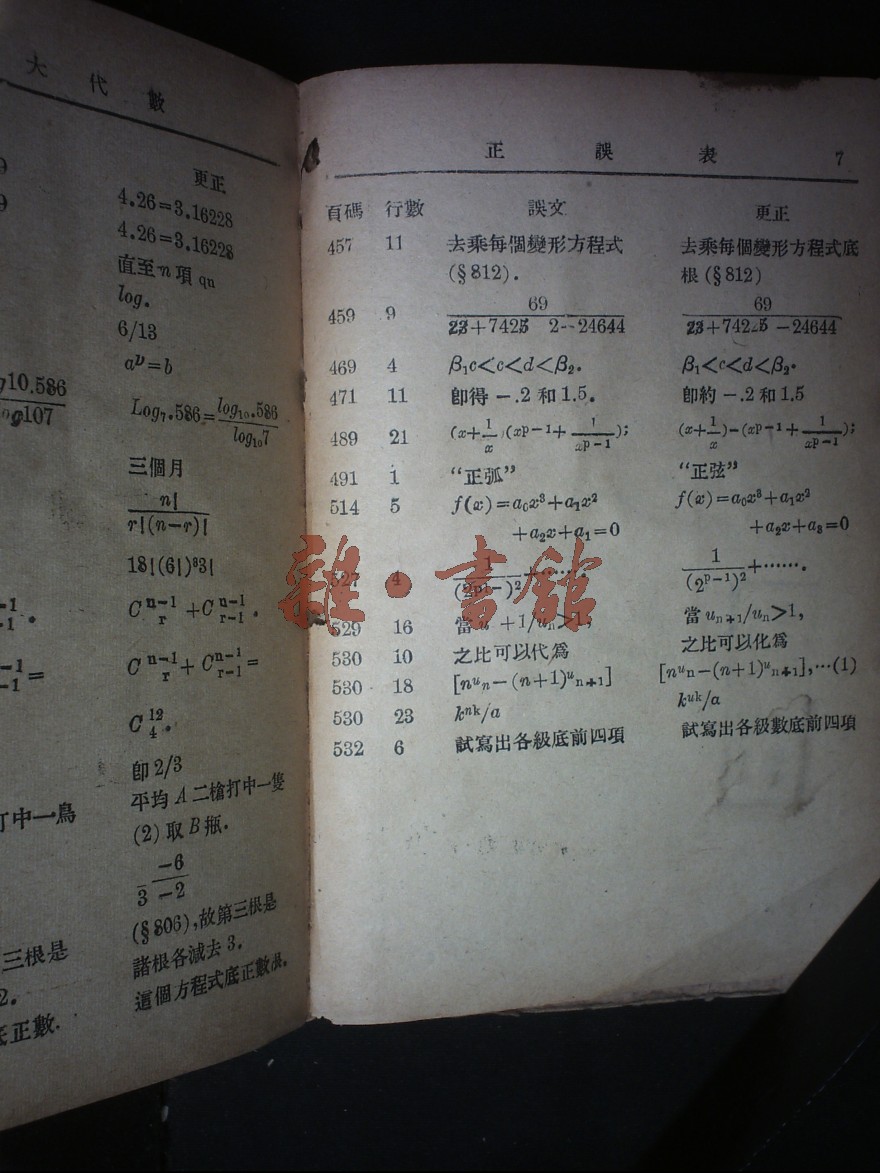 大 代 數
更正
4.26=3.16228
4.26=3.16228
直至n項 qn
log。
6/13
aᵖ=b
10.586
og107
Log₇.586=log₁₀.586/log₁₀7
三個月
n!/r!(n-r)!
18!(6!)³3!
Cⁿ⁻¹ᵣ+Cⁿ⁻¹ᵣ₋₁。
Cⁿ⁻¹ᵣ+Cⁿ⁻¹ᵣ₋₁=
C¹²₄。
卽2/3
打中一鳥
平均A二槍打中一隻
(2)取B瓶.
-6
3 -2
(§806),故第三根是
三根是
諸根各減去3.
2.
這個方程式底正數根.
底正數.
正 誤 表 7
頁碼 行數 誤文 更正
457 11 去乘每個變形方程式 去乘每個變形方程式底
(§812). 根(§812)
459 9 69 69
23+7425 2--24644 23+7422.5-24644
469 4 β₁c<c<d<β₂. β₁<c<d<β₂.
471 11 卽得-.2和1.5. 卽約-.2和1.5
489 21 (x+1/x)(xᵖ⁻¹+1/xᵖ⁻¹); (x+1/x)-(xᵖ⁻¹+1/xᵖ⁻¹);
491 1 “正弧” “正弦”
514 5 f(x)=a₀x³+a₁x² f(x)=a₀x³+a₁x²
+a₂x+a₁=0 +a₂x+a₃=0
527 4 1/(2ᵖ¹⁻)²+……. 1/(2ᵖ⁻¹)²+…….
529 16 當u +1/uₙ>1, 當uₙ₊₁/uₙ>1,
530 10 之比可以代爲 之比可以化爲
530 18 [nᵘₙ-(n+1)ᵘₙ₊₁] [nᵘₙ-(n+1)ᵘₙ₊₁],…(1)
530 23 kⁿᵏ/a kᵘᵏ/a
532 6 試寫出各級底前四項 試寫出各級數底前四項
雜·書館